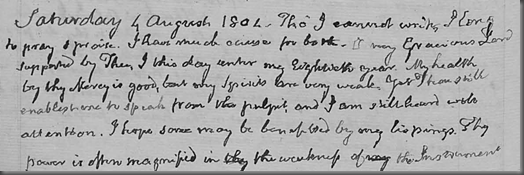 Saturday 4 August 1804. Tho' I cannot write, I long
to pray & praise. I have much cause for both. my Gracious Lord
supported by Thee, I this day enter my Eightieth year. My health
by thy Mercy is good, but my Spirits are very weak. Yet Thou still
enablest me to speak from the pulpit, and I am still heard with
attention. I hope some may be benefited by my lispings. Thy
power is often magnified in thy the weakness of my the Instrument